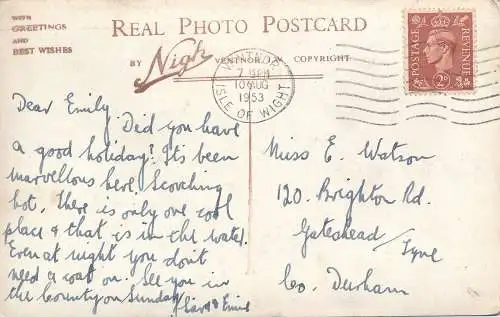 WITH
GREETINGS
AND
BEST WISHES
REAL PHOTO POSTCARD
BY Nigh VENTNOR, COPYRIGHT
VENTNOR
7 PM
10 AUG
1953
ISLE OF WIGHT
POSTAGE REVENUE
2D
Dear Emily. Did you have
a good holiday? It's been
marvellous here. Scorching
hot. There is only one cool
place & that is in the water.
Even at night you don't
need a coat on. See you in
the County on Sunday
Miss E. Watson
120. Brighton Rd.
Gateshead / Tyne
Co. Durham